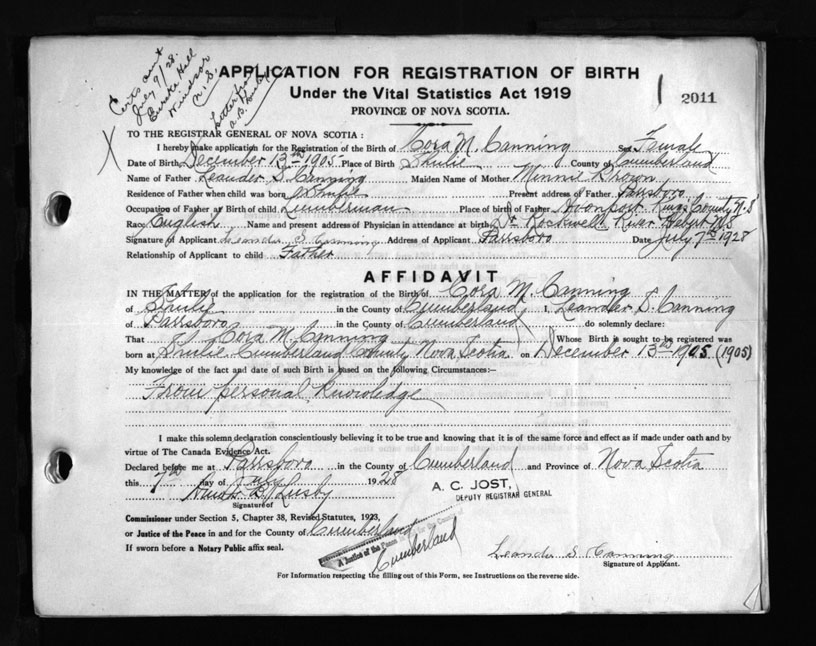 Certs sent
July 9/28.
Hall
Windsor
N.S.
letter from
APPLICATION FOR REGISTRATION OF BIRTH
Under the Vital Statistics Act 1919
PROVINCE OF NOVA SCOTIA.
2011
TO THE REGISTRAR GENERAL OF NOVA SCOTIA :
I hereby make application for the Registration of the Birth of Cora M. Canning Sex Female
Date of Birth December 13th 1905 Place of Birth Shulie County of Cumberland
Name of Father Leander S. Canning Maiden Name of Mother Minnie Brown
Residence of Father when child was born Shulie Present address of Father Parrsboro
Occupation of Father at Birth of child Lumberman Place of birth of Father Avonport Kings County N.S
Race English Name and present address of Physician in attendance at birth Dr Rockwell River Hebert N.S
Signature of Applicant Leander S Canning Address of Applicant Parrsboro Date July 7th 1928
Relationship of Applicant to child Father
AFFIDAVIT
IN THE MATTER of the application for the registration of the Birth of Cora M. Canning
of Shulie in the County of Cumberland I, Leander S. Canning
of Parrsboro in the County of Cumberland do solemnly declare:
That Cora M. Canning Whose Birth is sought to be registered was
born at Shulie Cumberland County Nova Scotia on December 13th 1905 (1905)
My knowledge of the fact and date of such Birth is based on the following Circumstances:—
From personal knowledge
I make this solemn declaration conscientiously believing it to be true and knowing that it is of the same force and effect as if made under oath and by
virtue of The Canada Evidence Act.
Declared before me at Parrsboro in the County of Cumberland and Province of Nova Scotia
this 7th day of July 1928
A. C. JOST,
DEPUTY REGISTRAR GENERAL
B. Lusby
Signature of
Commissioner under Section 5, Chapter 38, Revised Statutes, 1923,
or Justice of the Peace in and for the County of Cumberland
If sworn before a Notary Public affix seal.
A Justice of the Peace in and for the County of
Cumberland
Leander S Canning
Signature of Applicant.
For Information respecting the filling out of this Form, see Instructions on the reverse side.